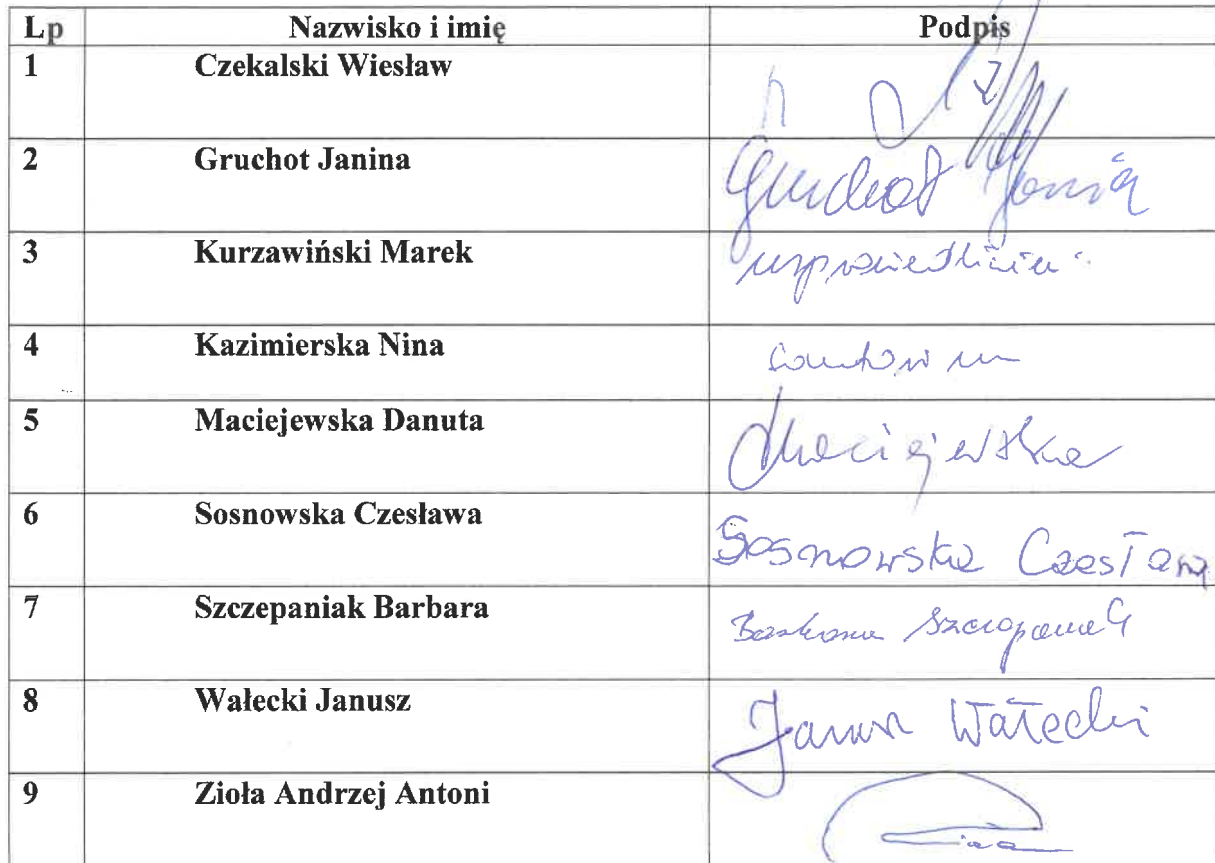 Lp Nazwisko i imię Podpis
1 Czekalski Wiesław
2 Gruchot Janina Gruchot Janina
3 Kurzawiński Marek
4 Kazimierska Nina
5 Maciejewska Danuta Maciejewska
6 Sosnowska Czesława Sosnowska Czesława
7 Szczepaniak Barbara Barbara Szczepaniak
8 Wałecki Janusz Janusz Wałecki
9 Zioła Andrzej Antoni